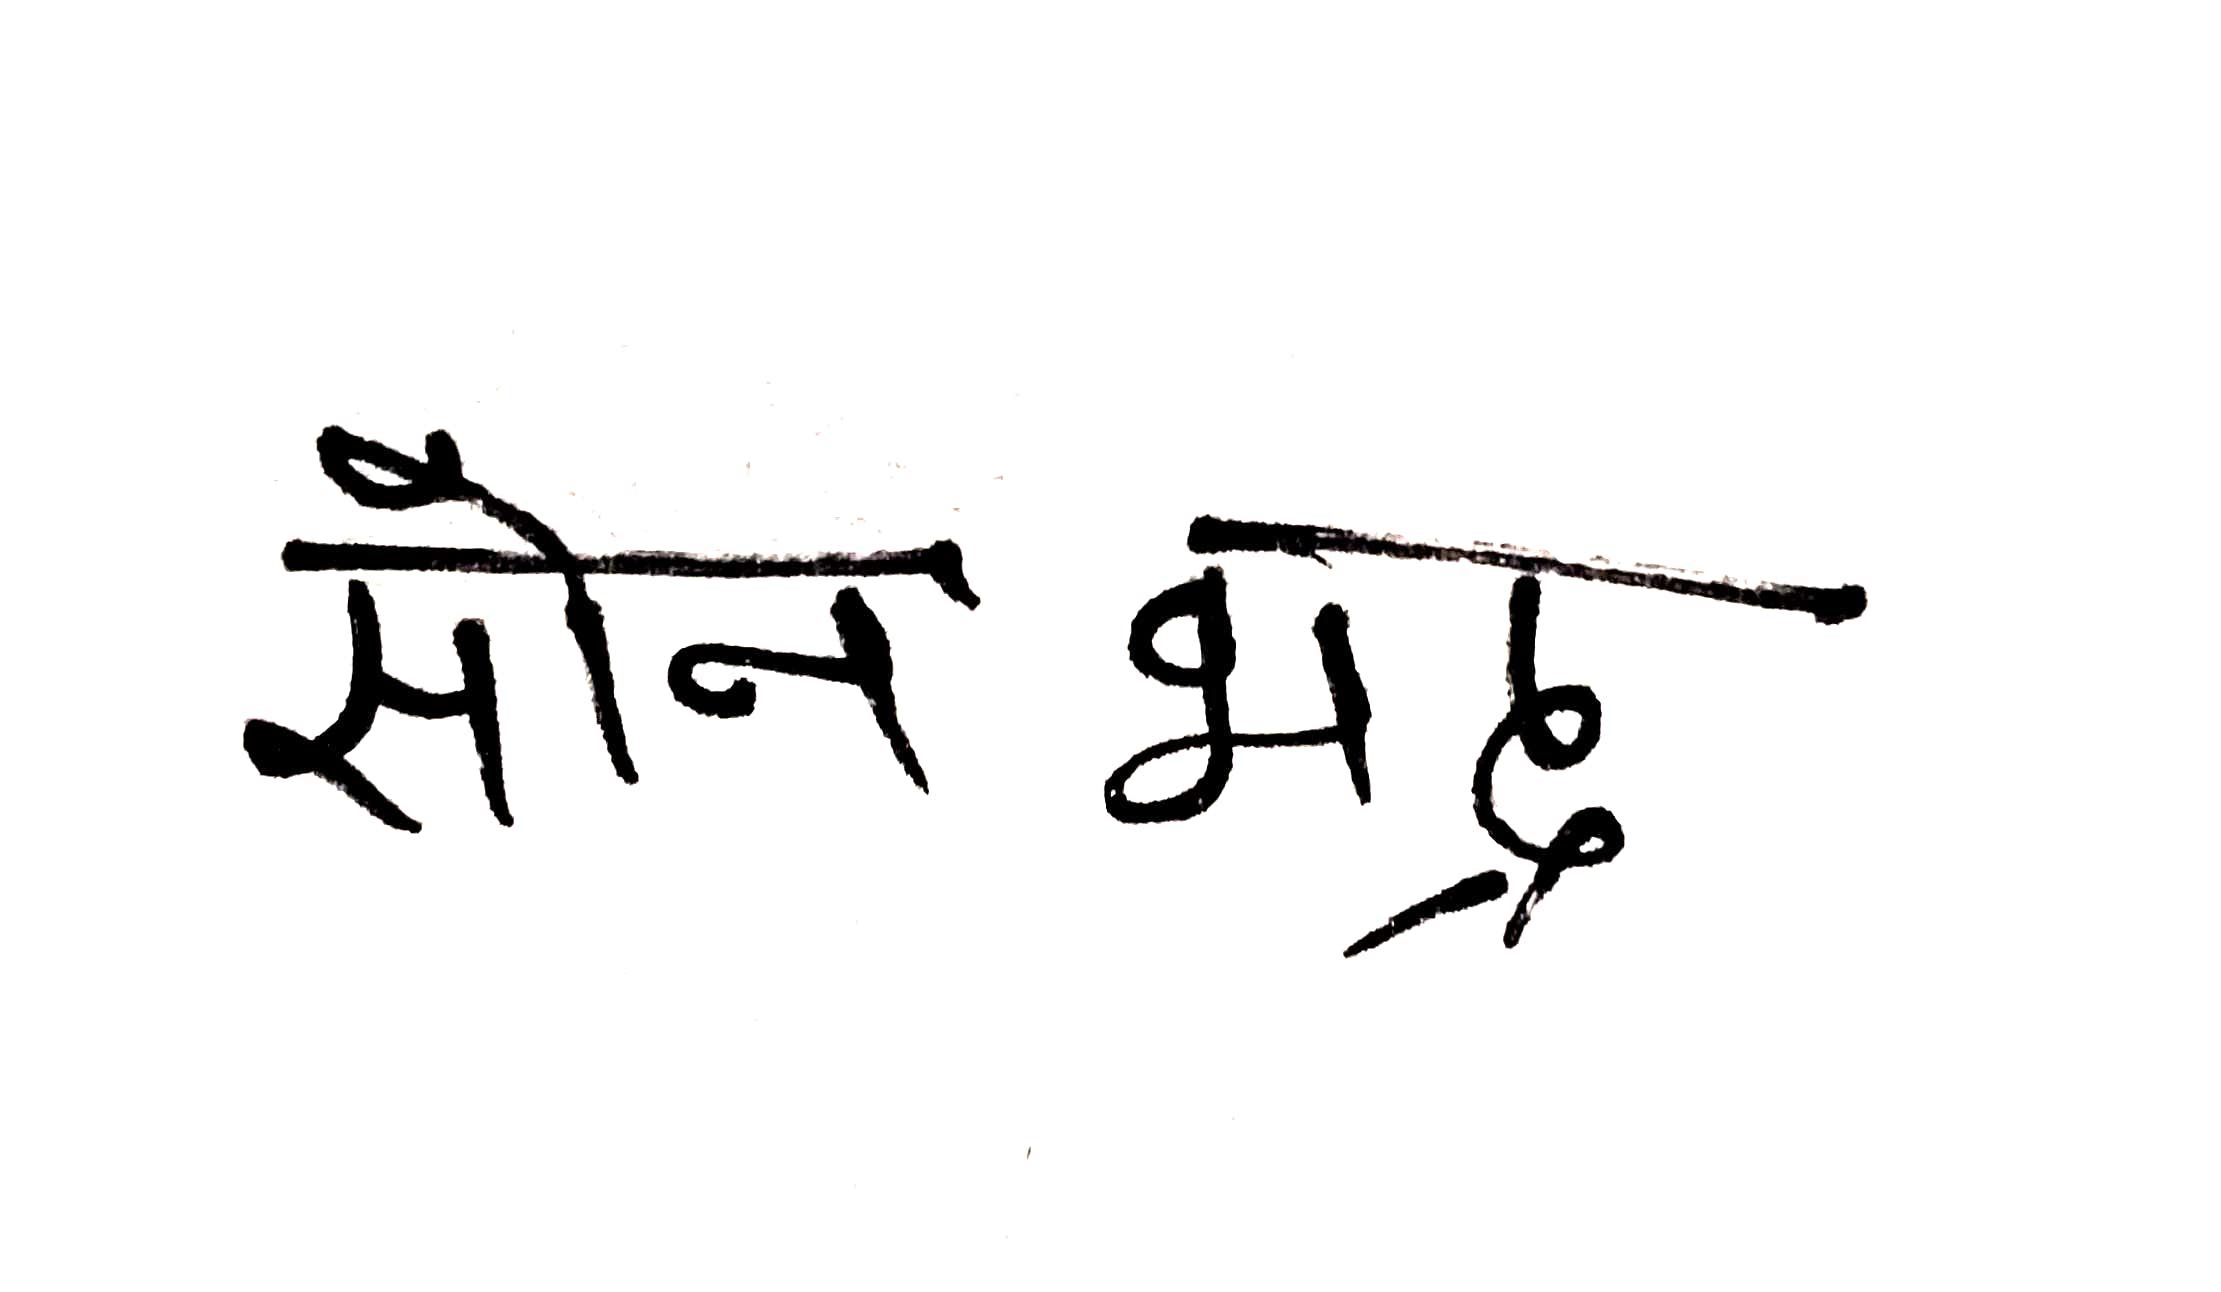 सोन भद्र